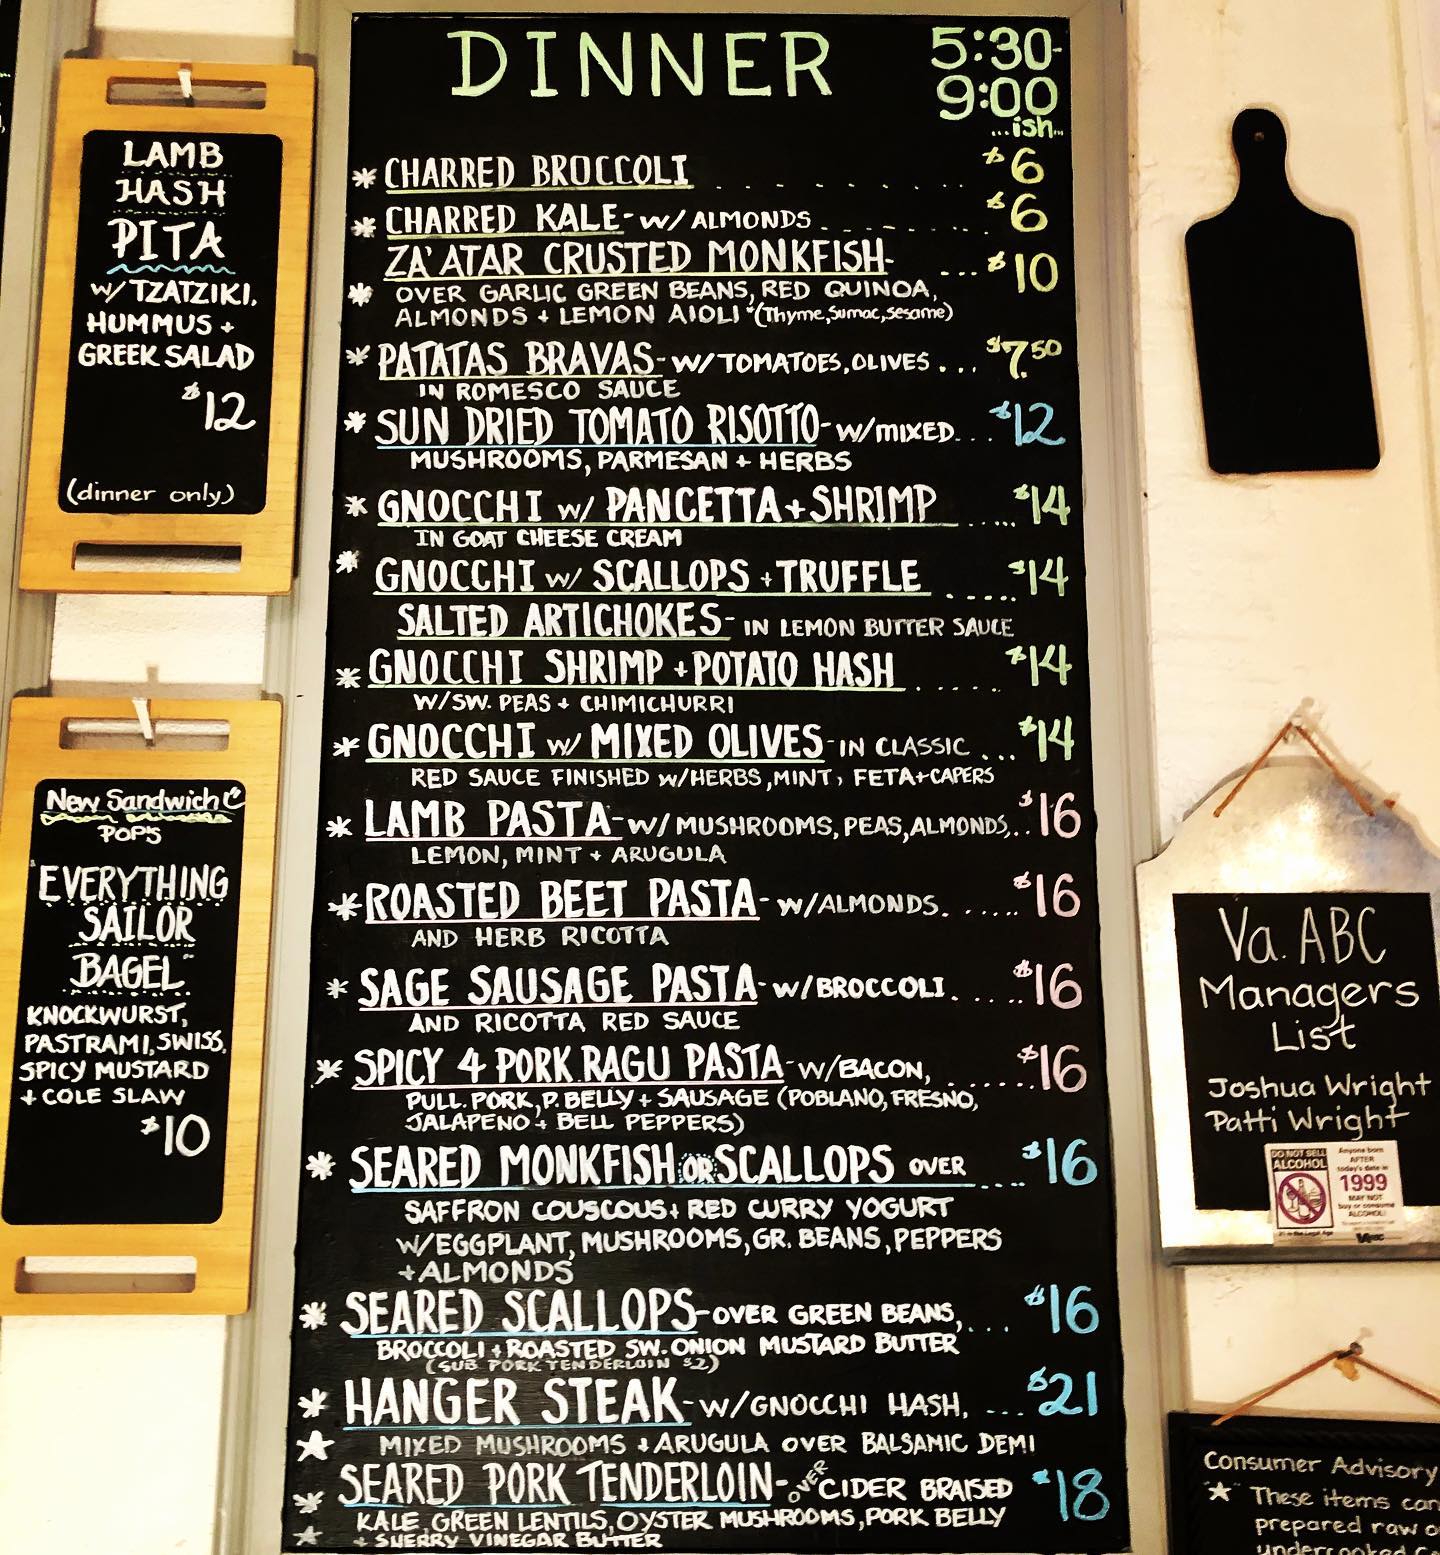 LAMB
HASH
PITA
W/ TZATZIKI,
HUMMUS +
GREEK SALAD
$12
(dinner only)
New Sandwich
POP'S
"EVERYTHING
SAILOR
BAGEL"
KNOCKWURST,
PASTRAMI, SWISS,
SPICY MUSTARD
+ COLE SLAW
$10
DINNER 5:30-
9:00
...ish...
* CHARRED BROCCOLI . . . . . . . $6
* CHARRED KALE- W/ ALMONDS . . . . . . . $6
ZA'ATAR CRUSTED MONKFISH- ... $10
* OVER GARLIC GREEN BEANS, RED QUINOA,
ALMONDS + LEMON AIOLI *(Thyme, Sumac, Sesame)
* PATATAS BRAVAS- W/ TOMATOES, OLIVES ... $7.50
IN ROMESCO SAUCE
* SUN DRIED TOMATO RISOTTO- W/MIXED ... $12
MUSHROOMS, PARMESAN + HERBS
* GNOCCHI W/ PANCETTA + SHRIMP ..... $14
IN GOAT CHEESE CREAM
* GNOCCHI W/ SCALLOPS + TRUFFLE ..... $14
SALTED ARTICHOKES- IN LEMON BUTTER SAUCE
* GNOCCHI SHRIMP + POTATO HASH ..... $14
W/SW. PEAS + CHIMICHURRI
* GNOCCHI W/ MIXED OLIVES- IN CLASSIC ... $14
RED SAUCE FINISHED W/HERBS, MINT, FETA+CAPERS
* LAMB PASTA- W/ MUSHROOMS, PEAS, ALMONDS, .. $16
LEMON, MINT + ARUGULA
* ROASTED BEET PASTA- W/ALMONDS. ..... $16
AND HERB RICOTTA
* SAGE SAUSAGE PASTA- W/BROCCOLI ..... $16
AND RICOTTA RED SAUCE
* SPICY 4 PORK RAGU PASTA- W/BACON, ...... $16
PULL. PORK, P. BELLY + SAUSAGE (POBLANO, FRESNO,
JALAPENO + BELL PEPPERS)
* SEARED MONKFISH OR SCALLOPS OVER .... $16
SAFFRON COUSCOUS + RED CURRY YOGURT
W/EGGPLANT, MUSHROOMS, GR. BEANS, PEPPERS
+ALMONDS
* SEARED SCALLOPS- OVER GREEN BEANS, ... $16
BROCCOLI + ROASTED SW. ONION MUSTARD BUTTER
(SUB PORK TENDERLOIN $2)
* HANGER STEAK- W/GNOCCHI HASH, ... $21
★ MIXED MUSHROOMS + ARUGULA OVER BALSAMIC DEMI
SEARED PORK TENDERLOIN- OVER CIDER BRAISED $18
* KALE, GREEN LENTILS, OYSTER MUSHROOMS, PORK BELLY
★ + SHERRY VINEGAR BUTTER
Va. ABC
Managers
List
Joshua Wright
Patti Wright
DO NOT SELL
ALCOHOL
Anyone born
AFTER
today's date in
1999
MAY NOT
buy or consume
ALCOHOL!
Consumer Advisory
"★" These items can
prepared raw o
undercooked